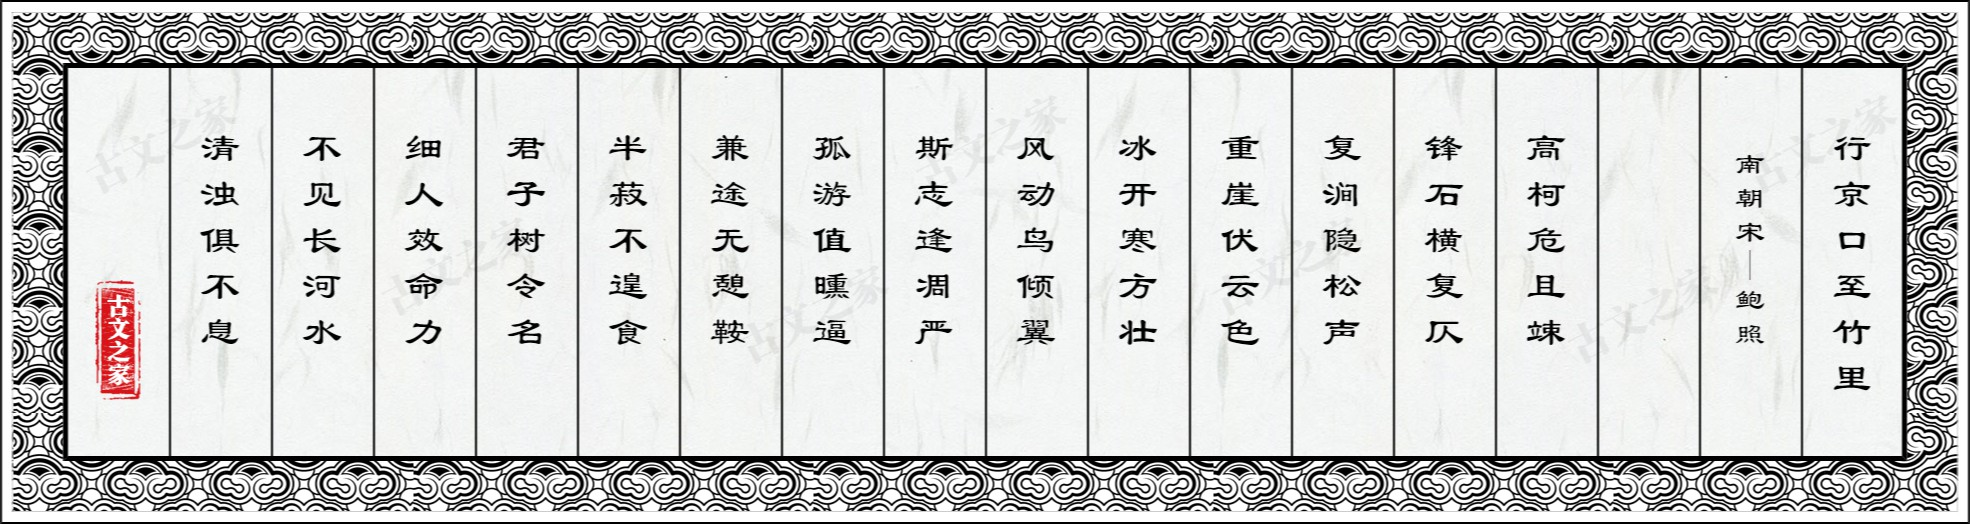 行京口至竹里
南朝宋—鲍照
高柯危且竦
锋石横复仄
复涧隐松声
重崖伏云色
冰开寒方壮
风动鸟倾翼
斯志逢凋严
孤游值曛逼
兼途无憩鞍
半菽不遑食
君子树令名
细人效命力
不见长河水
清浊俱不息
古文之家